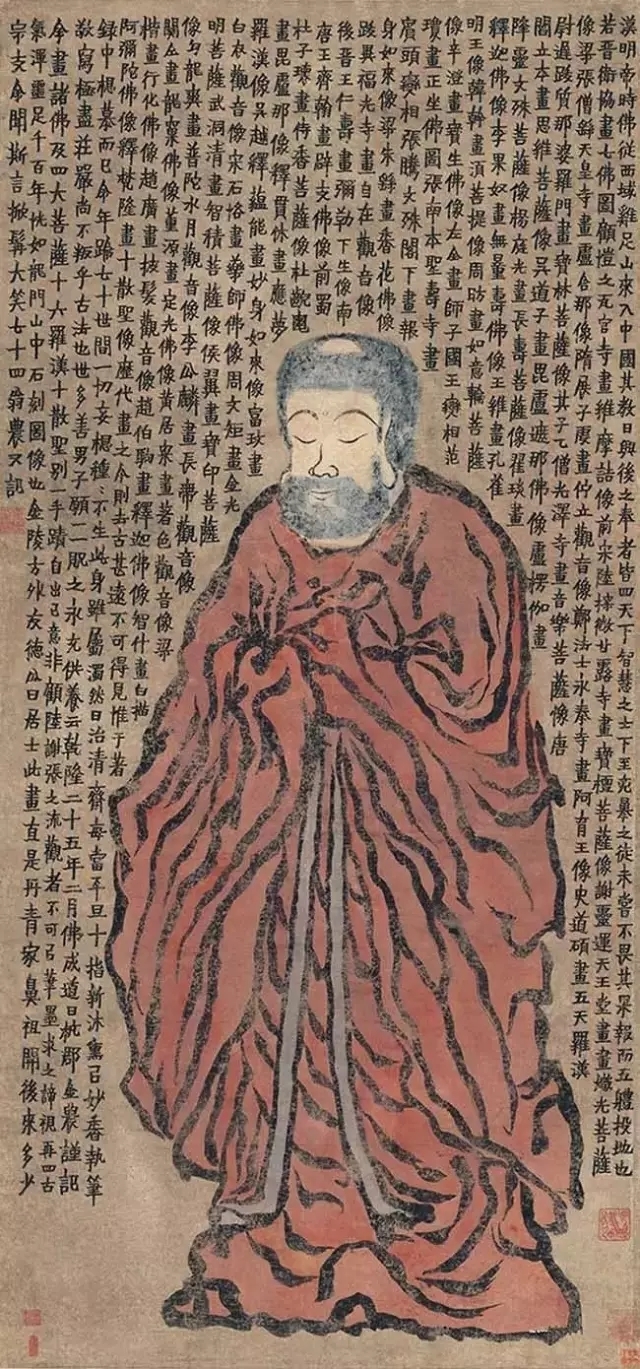 漢明帝時佛從西域雞足山來入中國其教日興後之奉者皆四天下智慧之士下至兇暴之徒未嘗不畏其果報而五體投地也
若晉衛協畫七佛圖顧愷之瓦官寺畫維摩詰像前宋陸探微甘露寺畫寶檀菩薩像謝靈運天王堂畫畫熾光菩薩
像梁張僧繇天皇寺畫盧舍那像隋展子虔畫佇立觀音像鄭法士永泰寺畫阿育王像史道碩畫五天羅漢
尉遲跋質那婆羅門畫寶林菩薩像其子乙僧光澤寺畫音樂菩薩像唐
閻立本畫思維菩薩像吳道子畫毘盧遮那佛像盧楞伽畫
降靈文殊菩薩像楊庭光畫長壽菩薩像翟琰畫
釋迦佛像李果奴畫無量壽佛像王維畫孔雀
明王像韓幹畫須菩提像周昉畫如意輪菩薩
像辛澄畫寶生佛像左全畫師子國王變相范
瓊畫正坐佛圖張南本聖壽寺畫
賓頭變相張騰文殊閣下畫報
身如來像梁朱繇畫香花佛像
跋異福光寺畫自在觀音像
後晉王仁壽畫彌勒下生像南
唐王齊翰畫辟支佛像前蜀
杜子瓌畫侍香菩薩像杜齯龜
畫毘盧那像釋貫休畫應夢
羅漢像吳越釋蘊能畫妙身如來像富玫畫
白衣觀音像宋石恪畫藥師佛像周文矩畫金光
明菩薩武洞清畫智積菩薩像侯翼畫寶印菩薩
像勾龍爽畫普陀水月觀音像李公麟畫長帶觀音像
關仝畫龍窠佛像董源畫定光佛像黃居寀畫著色觀音像梁
楷畫行化佛像趙廣畫披髮觀音像趙伯駒畫釋迦佛像智什畫白描
阿彌陀佛像釋梵隆畫十散聖像歷代畫之今則去古甚遠不可得見惟于著
錄中想慕而已今年踰七十世間一切妄想種〻不生此身雖屬濁然日治清齋每當平旦十指新沐熏以妙香執筆
敬寫極盡莊嚴尚不叛乎古法也世多善男子願一貺之永充供養云乾隆二十五年二月佛成道日杭郡金農謹記
余畫諸佛及四大菩薩十六羅漢十散聖別一手蹟自出己意非顧陸謝張之流觀者不可以筆墨求之諦視再四古
氣渾噩足千百年恍如龍門山中石刻圖像也金陵方外友德公曰居士此畫直是丹青家鼻祖開後來多少
宗支余聞斯言掀髯大笑七十四翁農又記